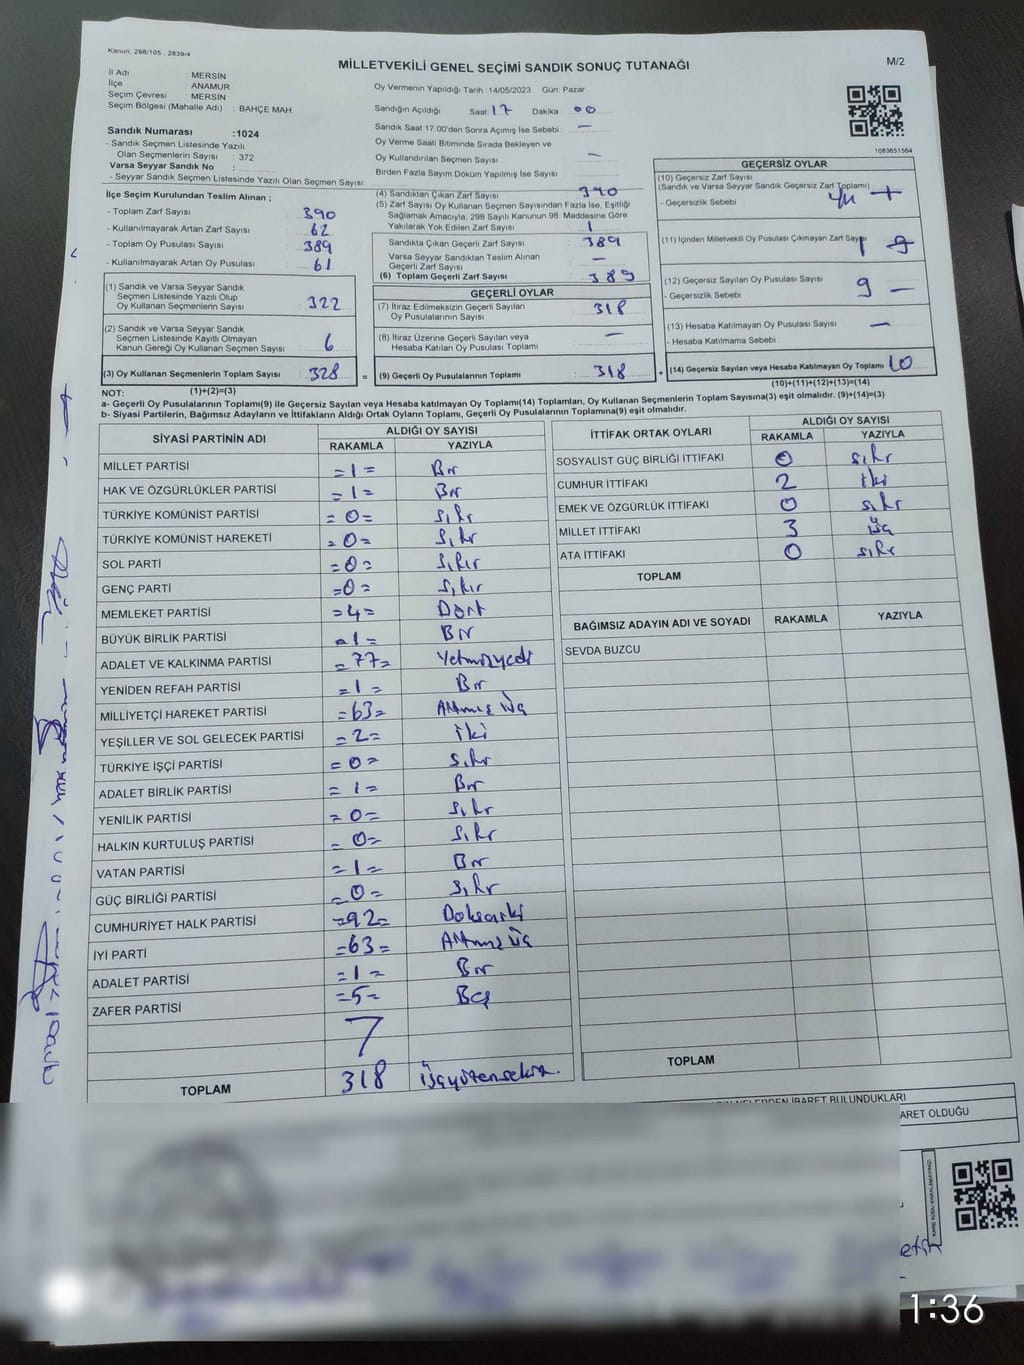 Kanun: 298/105 , 2839/4
MİLLETVEKİLİ GENEL SEÇİMİ SANDIK SONUÇ TUTANAĞI
M/2
İl Adı : MERSİN
İlçe : ANAMUR
Seçim Çevresi : MERSİN
Seçim Bölgesi (Mahalle Adı) : BAHÇE MAH.
Sandık Numarası :1024
- Sandık Seçmen Listesinde Yazılı
Olan Seçmenlerin Sayısı : 372
Varsa Seyyar Sandık No :
- Seyyar Sandık Seçmen Listesinde Yazılı Olan Seçmen Sayısı :
Oy Vermenin Yapıldığı Tarih :14/05/2023 Gün: Pazar
Sandığın Açıldığı Saat: 17 Dakika : 00
Sandık Saat 17:00'den Sonra Açımış İse Sebebi : —
Oy Verme Saati Bitiminde Sırada Bekleyen ve
Oy Kullandırılan Seçmen Sayısı —
Birden Fazla Sayım Döküm Yapılmış İse Sayısı
1083651564
İlçe Seçim Kurulundan Teslim Alınan ;
- Toplam Zarf Sayısı : 390
- Kullanılmayarak Artan Zarf Sayısı : 62
- Toplam Oy Pusulası Sayısı : 389
- Kullanılmayarak Artan Oy Pusulası : 61
(1) Sandık ve Varsa Seyyar Sandık
Seçmen Listesinde Yazılı Olup
Oy Kullanan Seçmenlerin Sayısı : 322
(2) Sandık ve Varsa Seyyar Sandık
Seçmen Listesinde Kayıtlı Olmayan
Kanun Gereği Oy Kullanan Seçmen Sayısı : 6
(3) Oy Kullanan Seçmenlerin Toplam Sayısı : 328
(1)+(2)=(3)
(4) Sandıktan Çıkan Zarf Sayısı : 390
(5) Zarf Sayısı Oy Kullanan Seçmen Sayısından Fazla İse, Eşitliği
Sağlamak Amacıyla; 298 Sayılı Kanunun 98. Maddesine Göre
Yakılarak Yok Edilen Zarf Sayısı : 1
Sandıkta Çıkan Geçerli Zarf Sayısı : 389
Varsa Seyyar Sandıktan Teslim Alınan
Geçerli Zarf Sayısı : —
(6) Toplam Geçerli Zarf Sayısı : 389
GEÇERLİ OYLAR
(7) İtiraz Edilmeksizin Geçerli Sayılan
Oy Pusulalarının Sayısı : 318
(8) İtiraz Üzerine Geçerli Sayılan veya
Hesaba Katılan Oy Pusulası Toplamı : —
= (9) Geçerli Oy Pusulalarının Toplamı : 318
GEÇERSİZ OYLAR
(10) Geçersiz Zarf Sayısı
(Sandık ve Varsa Seyyar Sandık Geçersiz Zarf Toplamı)
- Geçersizlik Sebebi
(11) İçinden Milletvekili Oy Pusulası Çıkmayan Zarf Sayısı
(12) Geçersiz Sayılan Oy Pusulası Sayısı : 9 —
- Geçersizlik Sebebi
(13) Hesaba Katılmayan Oy Pusulası Sayısı : —
- Hesaba Katılmama Sebebi
+ (14) Geçersiz Sayılan veya Hesaba Katılmayan Oy Toplamı : 10
(10)+(11)+(12)+(13)=(14)
NOT:
a- Geçerli Oy Pusulalarının Toplamı(9) ile Geçersiz Sayılan veya Hesaba katılmayan Oy Toplamı(14) Toplamları, Oy Kullanan Seçmenlerin Toplam Sayısına(3) eşit olmalıdır. (9)+(14)=(3)
b- Siyasi Partilerin, Bağımsız Adayların ve İttifakların Aldığı Ortak Oyların Toplamı, Geçerli Oy Pusulalarının Toplamına(9) eşit olmalıdır.
SİYASİ PARTİNİN ADI ALDIĞI OY SAYISI
RAKAMLA YAZIYLA
MİLLET PARTİSİ =1= Bir
HAK VE ÖZGÜRLÜKLER PARTİSİ =1= Bir
TÜRKİYE KOMÜNİST PARTİSİ =0= Sıfır
TÜRKİYE KOMÜNİST HAREKETİ =0= Sıfır
SOL PARTİ =0= Sıfır
GENÇ PARTİ =0= Sıfır
MEMLEKET PARTİSİ =4= Dört
BÜYÜK BİRLİK PARTİSİ =1= Bir
ADALET VE KALKINMA PARTİSİ =77= Yetmişyedi
YENİDEN REFAH PARTİSİ =1= Bir
MİLLİYETÇİ HAREKET PARTİSİ =63= Altmış üç
YEŞİLLER VE SOL GELECEK PARTİSİ =2= iki
TÜRKİYE İŞÇİ PARTİSİ =0= Sıfır
ADALET BİRLİK PARTİSİ =1= Bir
YENİLİK PARTİSİ =0= Sıfır
HALKIN KURTULUŞ PARTİSİ =0= Sıfır
VATAN PARTİSİ =1= Bir
GÜÇ BİRLİĞİ PARTİSİ =0= Sıfır
CUMHURİYET HALK PARTİSİ =92= Doksaniki
İYİ PARTİ =63= Altmış üç
ADALET PARTİSİ =1= Bir
ZAFER PARTİSİ =5= Beş
TOPLAM 318 üçyüzonsekiz.
İTTİFAK ORTAK OYLARI ALDIĞI OY SAYISI
RAKAMLA YAZIYLA
SOSYALİST GÜÇ BİRLİĞİ İTTİFAKI 0 sıfır
CUMHUR İTTİFAKI 2 iki
EMEK VE ÖZGÜRLÜK İTTİFAKI 0 sıfır
MİLLET İTTİFAKI 3 üç
ATA İTTİFAKI 0 sıfır
TOPLAM
BAĞIMSIZ ADAYIN ADI VE SOYADI RAKAMLA YAZIYLA
SEVDA BUZCU
TOPLAM
İBARET BULUNDUKLARI
ARET OLDUĞU
1:36